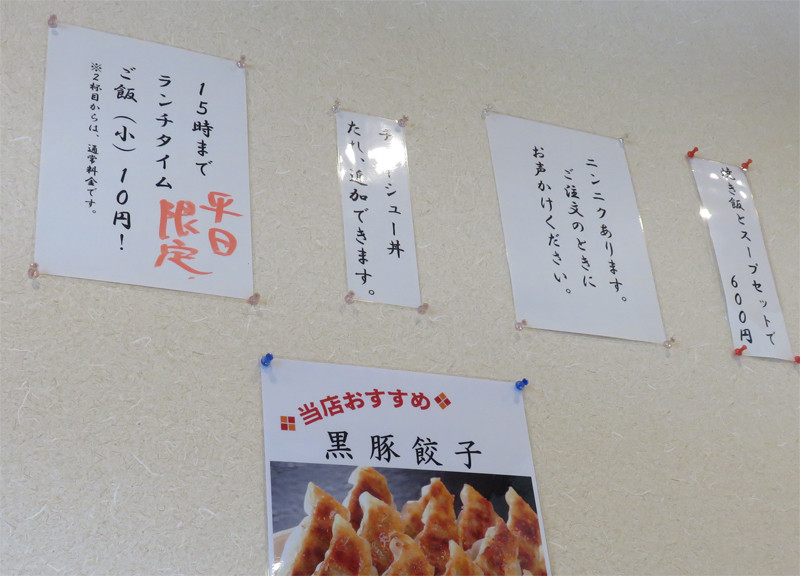 15時まで
ランチタイム
ご飯（小）10円！
※2杯目からは、通常料金です。
平日
限定
チャーシュー丼
たれ、追加できます。
ニンニクあります。
ご注文のときに
お声かけください。
焼き飯とスープセットで
600円
当店おすすめ
黒豚餃子